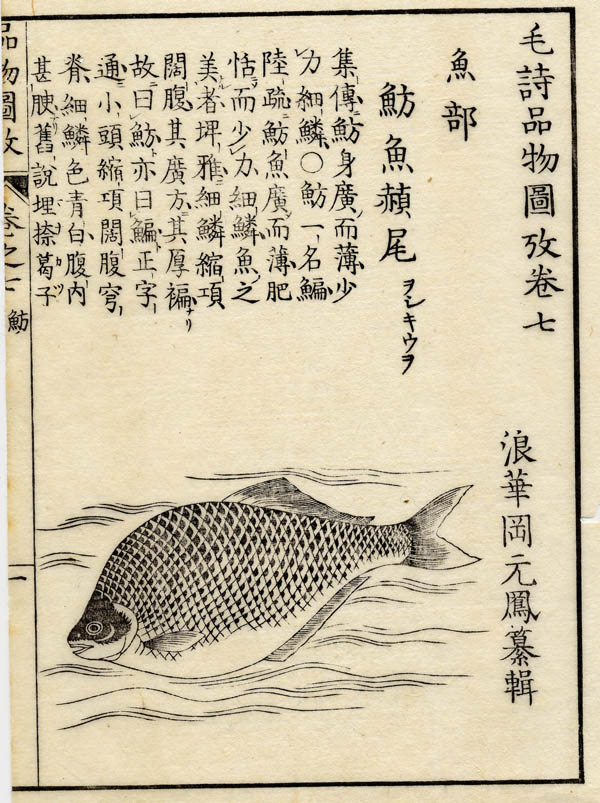 毛詩品物圖攷卷七
浪華岡元鳳纂輯
魚部
魴魚赬尾 ヲシキウヲ
集傳魴身廣而薄少
力細鱗○魴一名鯿
陸疏魴魚廣而薄肥
恬而少力細鱗魚之
美者埤雅細鱗縮項
闊腹其廣方其厚褊ナリ
故曰魴亦曰鯿正字
通小頭縮項闊腹穹
脊細鱗色青白腹内
甚腴舊說埋捺葛子
品物圖攷
卷之七
魴
一